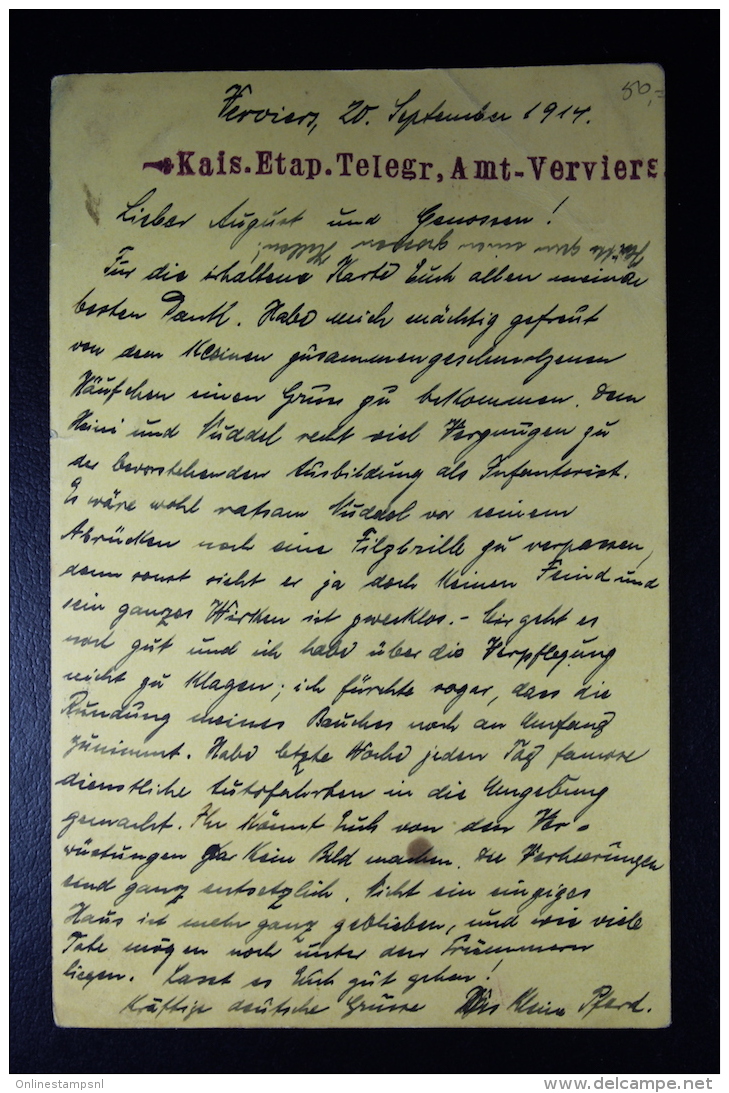 50,=
Verviers, 20. September 1914.
Kais.Etap.Telegr,Amt-Verviers
Lieber August und Genossen!
Für die erhaltene Karte Euch allen meinen
besten Dank. Habe mich mächtig gefreut
von dem kleinen zusammengeschmolzenen
Häufchen einen Gruss zu bekommen. Dem
Heini und Nuddel recht viel Vergnügen zu
der bevorstehenden Ausbildung als Infanterist.
Es wäre wohl ratsam Nuddel vor seinem
Abrücken noch eine Filzbrille zu verpassen,
denn sonst sieht er ja doch keinen Feind und
sein ganzes Wirken ist zwecklos. - Mir geht es
noch gut und ich habe über die Verpflegung
nicht zu klagen; ich fürchte sogar, dass die
Rundung meines Bauches noch an Umfang
zunimmt. Habe letzte Woche jeden Tag famose
dienstliche Autofahrten in die Umgebung
gemacht. Ihr könnt Euch von den Ver-
wüstungen gar kein Bild machen. Die Verheerungen
sind ganz entsetzlich. Nicht ein einziges
Haus ist mehr ganz geblieben, und wie viele
Tote mögen noch unter den Trümmern
liegen. Lasst es Euch gut gehen!
Kräftige deutsche Grüsse Klein Pferd.
Onlinestampsnl
http://www.delcampe.net